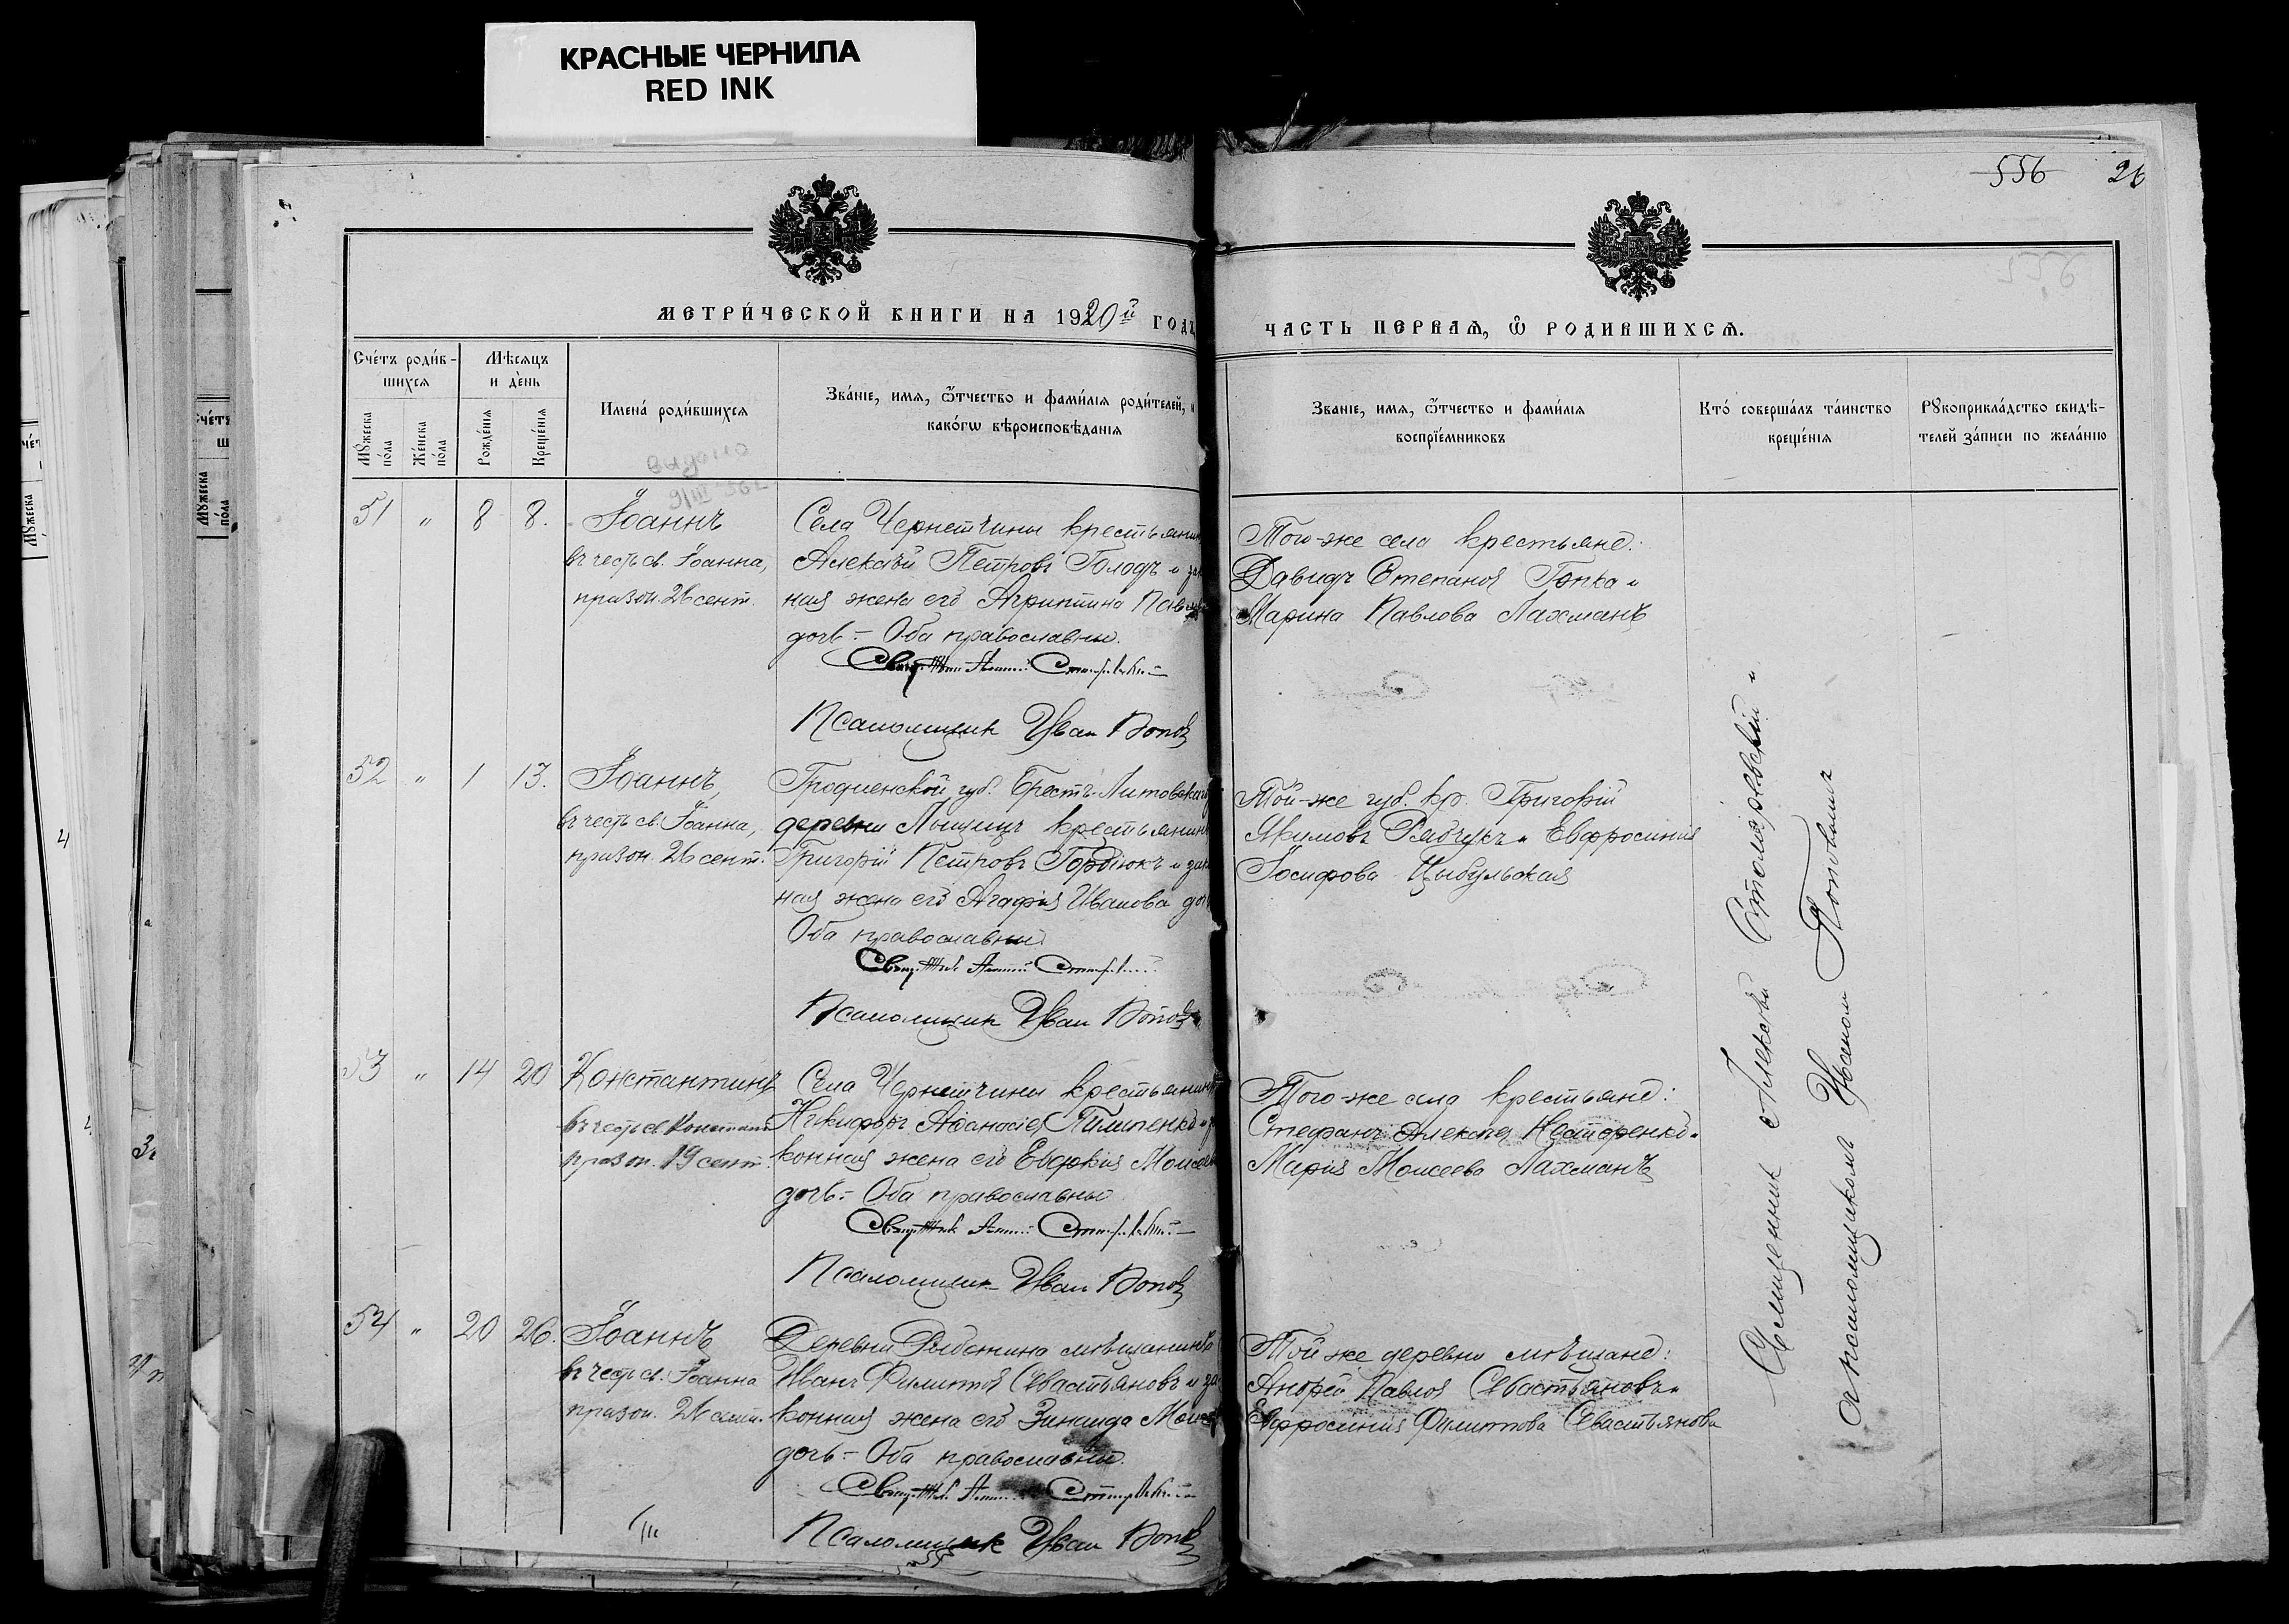 КРАСНЫЕ ЧЕРНИЛА
RED INK
556 26
МЕТРИ́ЧЕСКОЙ КНИГИ НА 1920й ГОДЪ
ЧАСТЬ ПЕРВАѦ, Ѽ РОДИВШИХСѦ.
Сче́тъ роди́в-
шихсѧ
Мꙋ́жеска по́ла
Же́нска по́ла
Мѣ́сѧцъ
и де́нь
Рожде́нїѧ
Креще́нїѧ
Имена́ роди́вшихсѧ
Зва́нїе, имѧ, ѻ҆́тчество и фами́лїѧ роди́телей, и
како́гѡ вѣроисповѣ́данїѧ
Зва́нїе, имѧ, ѻ҆́тчество и фами́лїѧ
воспрїе́мниковъ
Кто́ соверша́лъ та́инство
креще́нїѧ
Рꙋкоприкла́дство свидѣ́-
телей за́писи по жела́нїю
выдано
9/III
51 " 8 8.
Іоаннъ
въ честь св. Іоанна,
празон. 26 сент.
Села Чернетчины крестьянинъ
Алексѣй Петровъ Голодъ и зак
ная жена его Агрипина Павлова
дочь.- Оба православные.
Псаломщик Иван Попов
Того-же села крестьяне:
Давидъ Степановъ Гопка и
Марина Павлова Лахманъ
52 " 1 13.
Іоаннъ,
въ честь св. Іоанна,
празон. 26 сент.
Гродненской губ. Брестъ-Литовскаго
деревни Лыщицъ крестьянинъ
Григорій Петровъ Гордіюкъ и зак
ная жена его Агафія Иванова доч
Оба православные
Псаломщик Иван Попов
Той-же губ. кр. Григорій
Якимовъ Рябчукъ и Евфросинія
Іосифова Цыбульская
53 " 14 20
Константинъ
въ честь св. Констант.
празон. 19 сент.
Села Чернетчины крестьянинъ
Никифоръ Аѳанасіев Пилипенко и за
конная жена его Евдокія Моисеева
дочь.- Оба православные
Псаломщик Иван Попов
Того-же села крестьяне:
Стефанъ Алексѣев Нестеренко и
Марія Моисеева Лахманъ
54 " 20 26.
Іоаннъ
въ честь св. Іоанна
празон. 26 сент.
Деревни Рыбенина мѣщанинъ
Иванъ Филиппов Севастьяновъ и за
конная жена его Зинаида Моисеева
дочь.- Оба православные.
Псаломщик Иван Попов
Той же деревни мѣщане:
Андрей Павлов Севастьяновъ и
Евфросинія Филиппова Севастьянова
Священник Алексѣй Столяревскій и
с псаломщиком Иваном Поповымъ